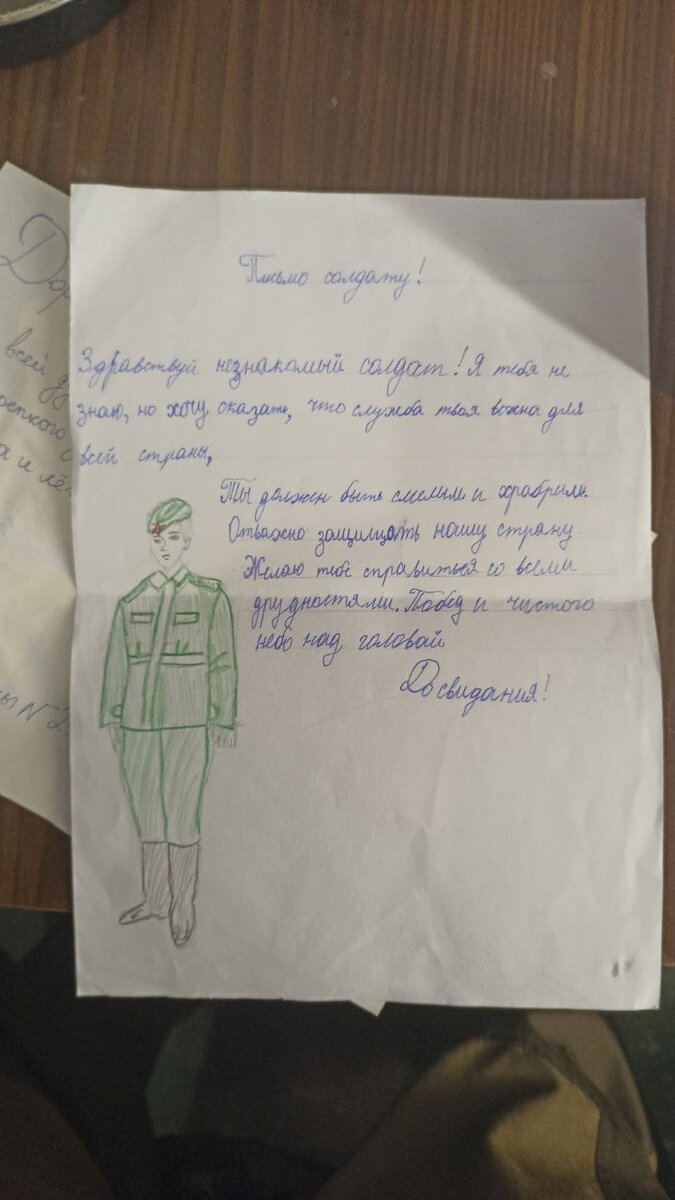 Письмо солдату!
Здравствуй незнакомый солдат! Я тебя не
знаю, но хочу сказать, что служба твоя важна для
всей страны,
Ты должен быть смелым и храбрым.
Отважно защищать нашу страну.
Желаю тебе справиться со всеми
друдностями. Побед и чистого
небо над головай
Досвидания!
Дор
всей
епкого
а и
ы №2